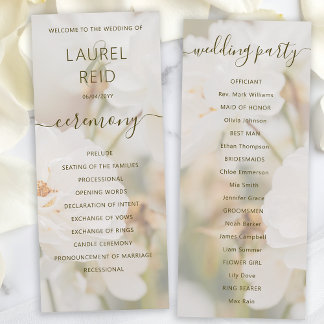 WELCOME TO THE WEDDING OF
LAUREL
REID
06/04/20YY
ceremony
PRELUDE
SEATING OF THE FAMILIES
PROCESSIONAL
OPENING WORDS
DECLARATION OF INTENT
EXCHANGE OF VOWS
EXCHANGE OF RINGS
CANDLE CEREMONY
PRONOUNCEMENT OF MARRIAGE
RECESSIONAL
wedding party
OFFICIANT
Rev. Mark Williams
MAID OF HONOR
Olivia Johnson
BEST MAN
Ethan Thompson
BRIDESMAIDS
Chloe Emmerson
Mia Smith
Jennifer Grace
GROOMSMEN
Noah Berker
James Campbell
Liam Sommer
FLOWER GIRL
Lily Dove
RING BEARER
Max Raio